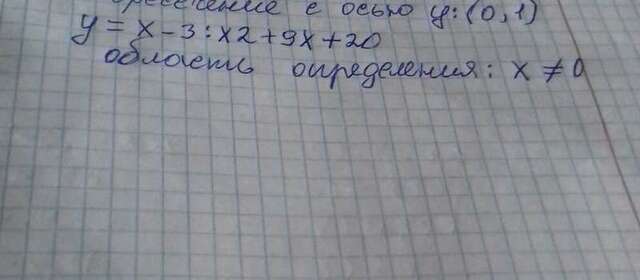 пересечение с осью y: (0,1)
y = x - 3 : x2 + 9x + 20
область определения: x ≠ 0